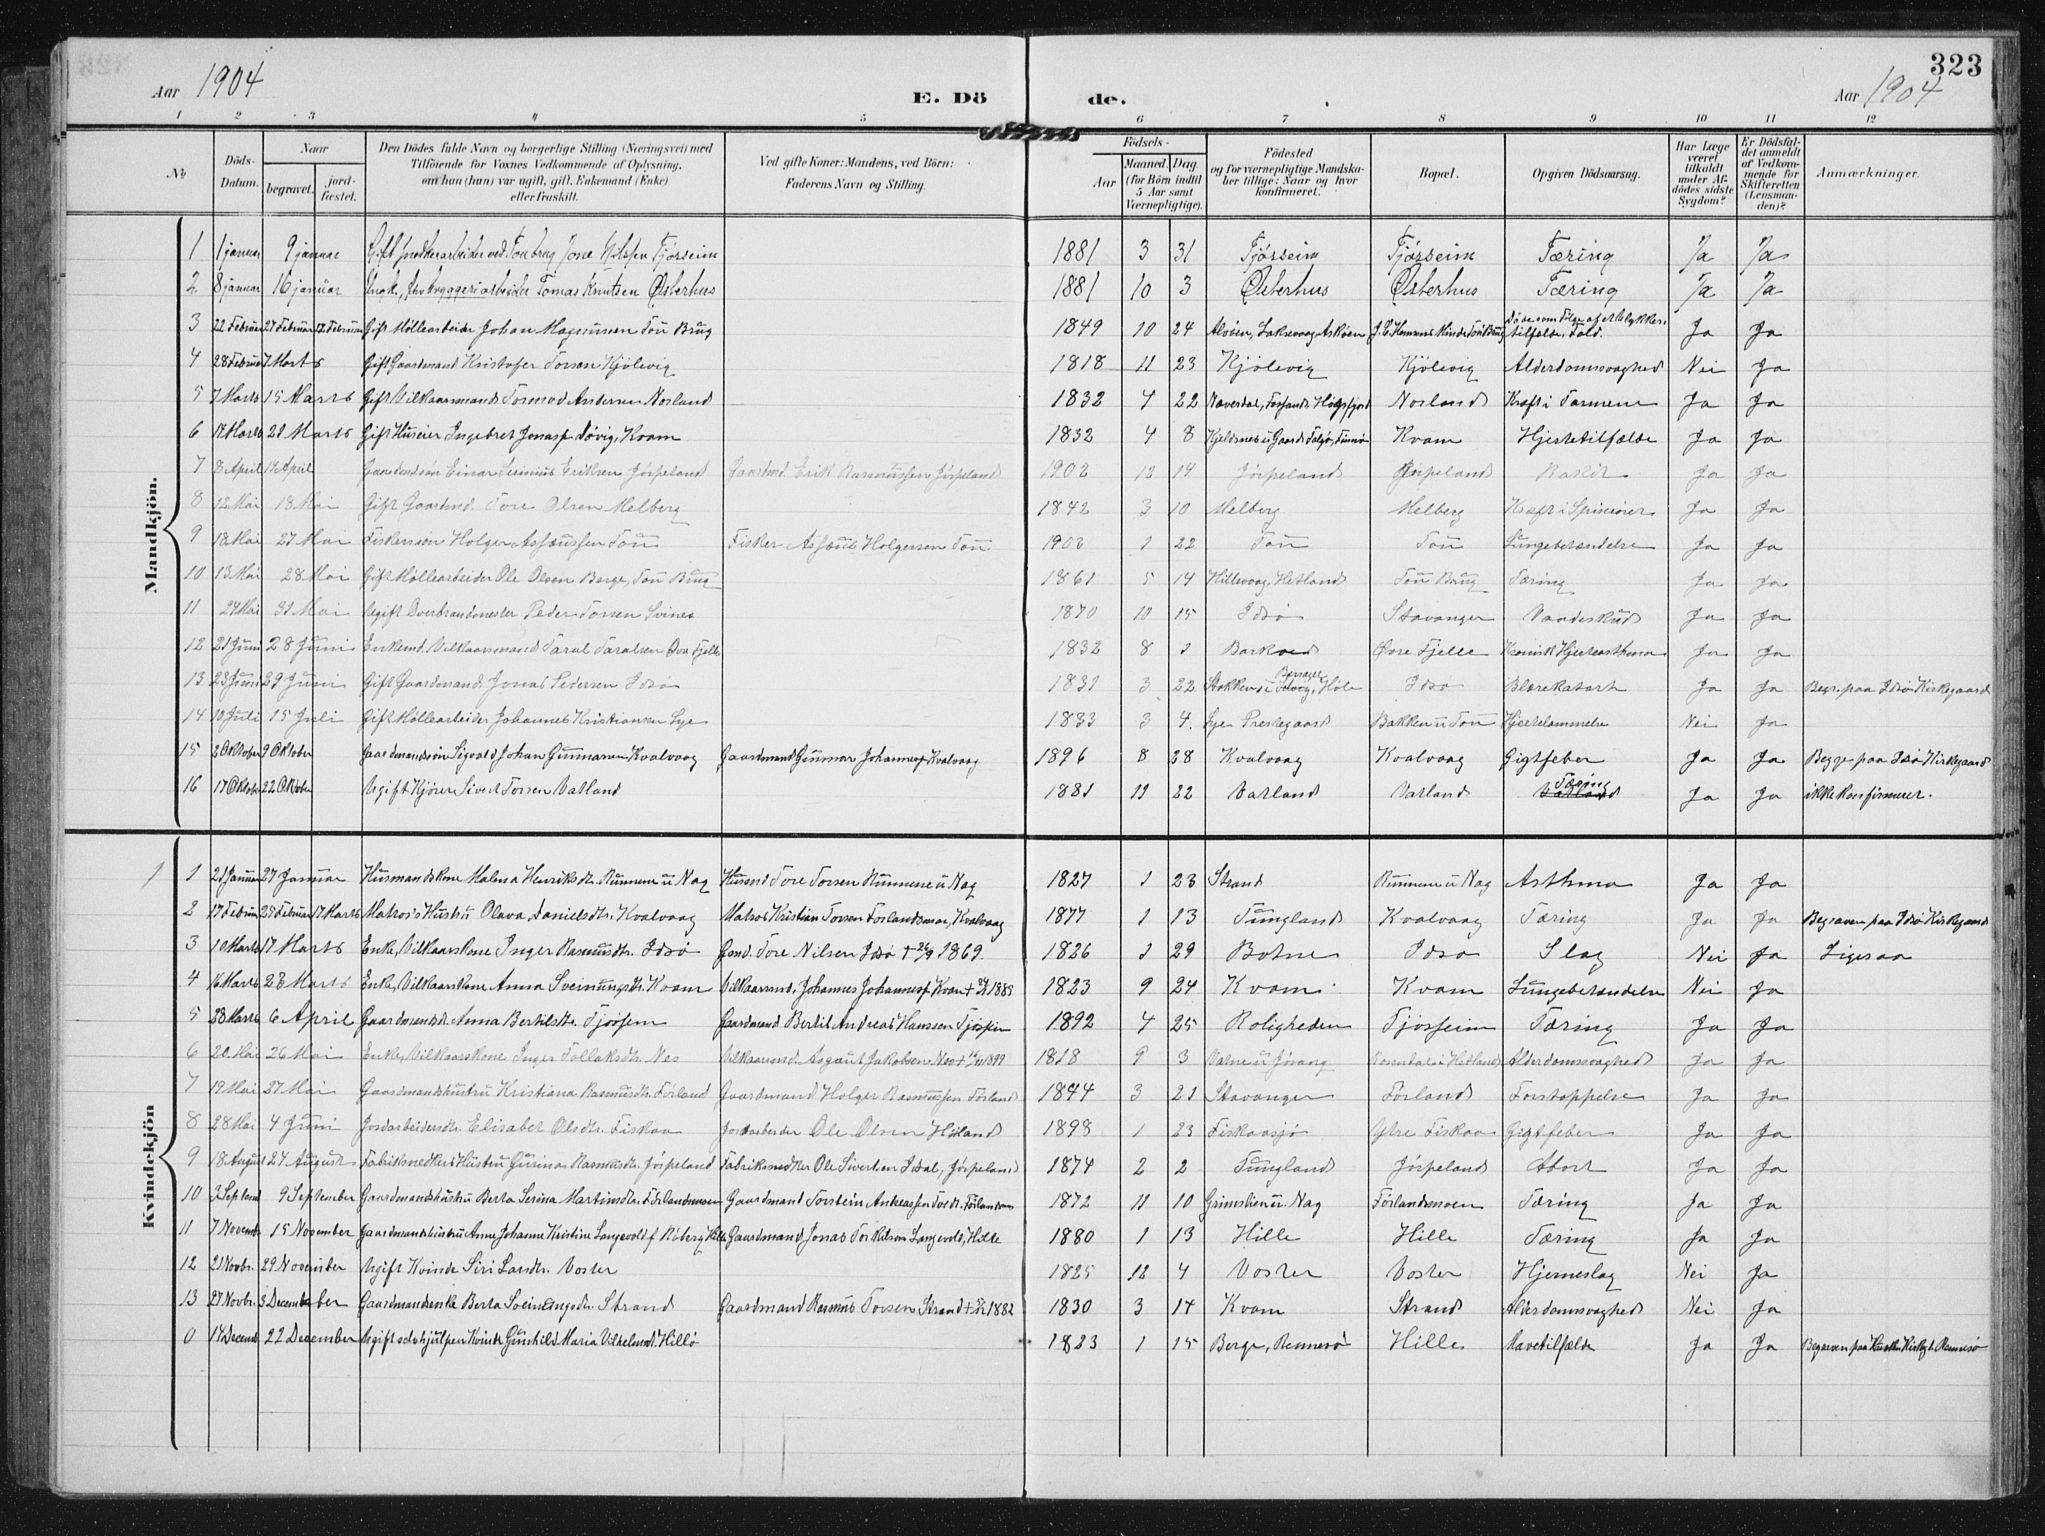 323
Aar 1904
E. Dö de.
Aar 1904
1 2 3 4 5 6 7 8 9 10 11 12
No
Döds-Datum.
Naar
begravet.
jord-fæstet.
Den Dödes fulde Navn og borgerlige Stilling (Næringsvei) med
Tilföiende for Voxnes Vedkommende af Oplysning,
om han (hun) var ugift, gift, Enkemand (Enke)
eller fraskilt.
Ved gifte Koner: Mandens, ved Börn:
Faderens Navn og Stilling.
Födsels-
Aar
Maaned. Dag.
(for Börn indtil 5 Aar samt Værnepligtige).
Födested
og for værnepligtige Mandskaber tillige: Naar og hvor konfirmeret.
Bopæl.
Opgiven Dödsaarsag.
Har Læge været tilkaldt under Afdödes sidste Sygdom?
Er Dödsfaldet anmeldt af Vedkommende for Skifteretten (Lensmanden)?
Anmærkninger.
Mandkjön.
1 1 januar 9 januar Gift Jone Nilssen Tjøsseim 1881 3 31 Tjøsseim Tjøsseim Tæring Ja Ja
2 8 januar 16 januar Ungk. Tomas Knutsen Østerhus 1881 10 3 Østerhus Østerhus Tæring Ja Ja
3 22 Februar 27 Februar 22 Februar Gift Möllearbeider Johan Magnussen Tou Brug 1849 10 24 Döde som Fölge af et Ulykkestilfælde, Fald. Ja Ja
4 28 Februar 7 Marts Gift Gaardmand Kristofer Torsen Kjölevig 1818 11 23 Kjölevig Kjölevig Alderdomssvaghed Nei Ja
5 7 Marts 15 Marts Gift Vilkaarsmand Tormod Andersen Norland 1832 4 22 Norland Kræft i Tarmene Ja Ja
6 17 Marts 21 Marts Gift Huseier Ingebret Jonass. Løvig, Kvam 1832 4 8 Kvam Hjertetilfælde Ja Ja
7 8 April 14 April Gaardmdsön Einar Severinus Eriksen Jörpeland Gaardmd. Erik Rasmussen Jörpeland 1902 12 14 Jörpeland Jörpeland Ja Ja
8 12 Mai 18 Mai Gift Gaardmd. Tore Olsen Melberg 1842 3 10 Melberg Melberg Kræft i Spiserörer Ja Ja
9 18 Mai 27 Mai Fiskersön Holger Assæussen Tou Fisker Assæus Holgersen Tou 1903 1 22 Tou Tou Lungebetændelse Ja Ja
10 13 Mai 28 Mai Gift Möllearbeider Ole Olsen Berge, Tou Brug 1861 5 14 Hillevaag, Hetland Tou Brug Tæring Ja Ja
11 24 Mai 31 Mai Ugift Overbrandmester Peder Torsen Svines 1870 10 15 Idsö Stavanger Vaadeskud Ja Ja
12 21 Juni 28 Juni Enkemd. Vilkaarsmand Tarul Taralsen Övre Fjelle 1832 8 1 Barkved Övre Fjelle Kronisk Hjerteasthma Ja Ja
13 23 Juni 29 Juni Gift Gaardmand Jonas Pedersen Idsö 1831 3 22 Idsö Blærekatarh Ja Ja Begr. paa Idsö Kirkegaard
14 10 Juli 15 Juli Gift Möllearbeider Johannes Kristiansen Lye 1833 3 4. Lye Prestegaard Bakken u Tou Hjertelammelse Nei Ja
15 2 Oktober 9 Oktober Gaardmandssön Sigvald Johan Gunnarsen Kvalvaag Gaardmand Gunnar Johanness. Kvalvaag 1896 8 28 Kvalvaag Kvalvaag Gigtfeber Ja Ja Begr. paa Idsö Kirkegaard
16 17 Oktober 22 Oktober Ugift Kjörer Sivert Torsen Vatland 1881 11 22 Vatland Vatland Tæring Ja Ja ikke konfirmeret.
Kvindekjön
1 1 21 Januar 27 Januar Husmandskone Malena Henriksdtr. Runnene u Nag Husmd Tore Torsen Runnene u Nag 1827 1 23 Strand Runnene u Nag Asthma Ja Ja
2 17 Februar 25 Februar 17 Marts Matros's Hustru Olava Danielsdtr. Kvalvaag Matros Kristian Torsen Forlandsmoe, Kvalvaag 1877 1 13 Tungland Kvalvaag Tæring Ja Ja Begraven paa Idsö Kirkegaard
3 10 Marts 17 Marts Enke, Vilkaarskone Inger Rasmusdtr. Idsö Gmd. Tore Nilsen Idsö + 1869. 1826 1 29 Botne Idsö Slag Nei Ja Ligesaa
4 16 Marts 23 Marts Enke, Vilkaarskone Anna Sveinungsdtr. Kvam Vilkaarsmd. Johannes Johanness. Kvam + 1885 1823 9 24 Kvam Kvam Lungebetændelse Nei Ja
5 28 Marts 6 April Gaardmandsdtr. Anna Bertilsdtr. Tjössem Gaardmand Bertil Andreas Hansen Tjössem 1892 4 25 Roligheden Tjösseim Tæring Ja Ja
6 20 Mai 26 Mai Enke, Vilkaarskone Inger Tollaksdtr. Nes Vilkaarsmd. Asgaut Jakobsen Nes + 1899 1818 9 3 Valne u Jörang Rosendal i Hetland Alderdomssvaghed Ja Ja
7 19 Mai 27 Mai Gaardmandshustru Kristiana Rasmusdtr. Förland Gaardmand Holger Rasmussen Förland 1844 3 21 Stavanger Förland Forstoppelse Ja Ja
8 28 Mai 4 Juni Jordarbeidersdtr. Elisabet Olsdtr. Fiskaa Jordarbeider Ole Olsen Hetland 1898 1 23 Fiskaasjö Ytre Fiskaa Gigtfeber Ja Ja
9 18 August 24 August Fabriksnedkers Hustru Gurina Rasmusdtr. Jörpeland Fabriksnedker Ole Sivertsen Idsal, Jörpeland 1874 2 2 Tungland Jörpeland Abort Ja Ja
10 3 Septemb 9 September Gaardmandshustru Berta Serina Martinsdtr. Förlandsmoen Gaardmand Torstein Andreassen 1872 11 10 Grimslien u. Nag Förlandsmoen Tæring Ja Ja
11 7 Novemb 15 November Gaardmandshustru Anne Johanne Kristine Langevold f Röberg Hille Gaardmand Jonas Torkelsen Langevold, Hille 1880 1 13 Hille Hille Tæring Ja Ja
12 21 Novbr. 29 November Ugift Kvinde Siri Larsdtr. Voster 1825 12 4 Voster Voster Hjerneslag Nei Ja
13 27 Novbr. 3 December Gaardmandsenke Berta Sveinungsdtr. Strand Gaardmand Rasmus Torsen Strand + 1882 1830 3 14 Kvam Strand Alderdomssvaghed Nei Ja
0 14 Decemb 22 December Ugift selvhjulpen Kvinde Gunhild Maria Vilhelmsdt. Hille 1823 1 15 Berge, Rennesö Hille Mavetilfælde Ja Ja Begraven paa Rennesö